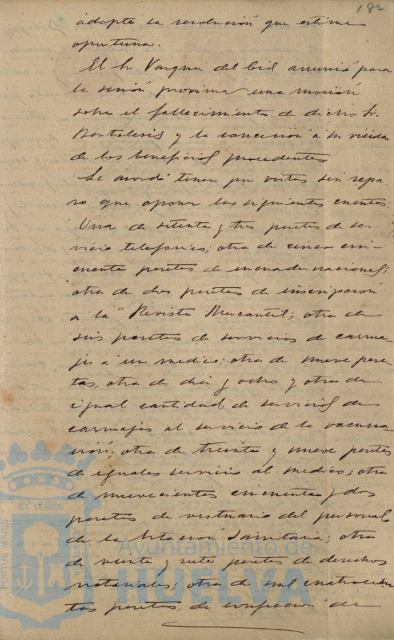 182
adopte la resolución que estime
oportuna.
El Sr. Vargas del Cid anunció para
la sesión próxima una moción
sobre el fallecimiento de dicho Sr.
y la concesión a su viuda
de los beneficios procedentes
Se acordó tener por vistas sin repa
ro que oponer las siguientes cuentas:
Una de setenta y tres pesetas de ser
vicio telefónico; otra de cinco cin
cuenta pesetas de encuadernaciones;
otra de dos pesetas de inscripción
a la "Revista Mercantil; otra de
seis pesetas de servicios de carrua
jes á un medico; otra de nueve pese
tas, otra de diez y ocho y otra de
igual cantidad de servicios de
carruajes al servicio de la vacuna
ción; otra de treinta y nueve pesetas
de iguales servicios al medico; otra
de nuevecientas cincuenta y dos
pesetas de vestuario del personal
de la Estacion Sanitaria; otra
de veinte y siete pesetas de derechos
notariales; otra de mil cuatrocien
tas pesetas, de confeccion de
PORTUS MARIS
ET TERRÆ
Ayuntamiento de
HUELVA